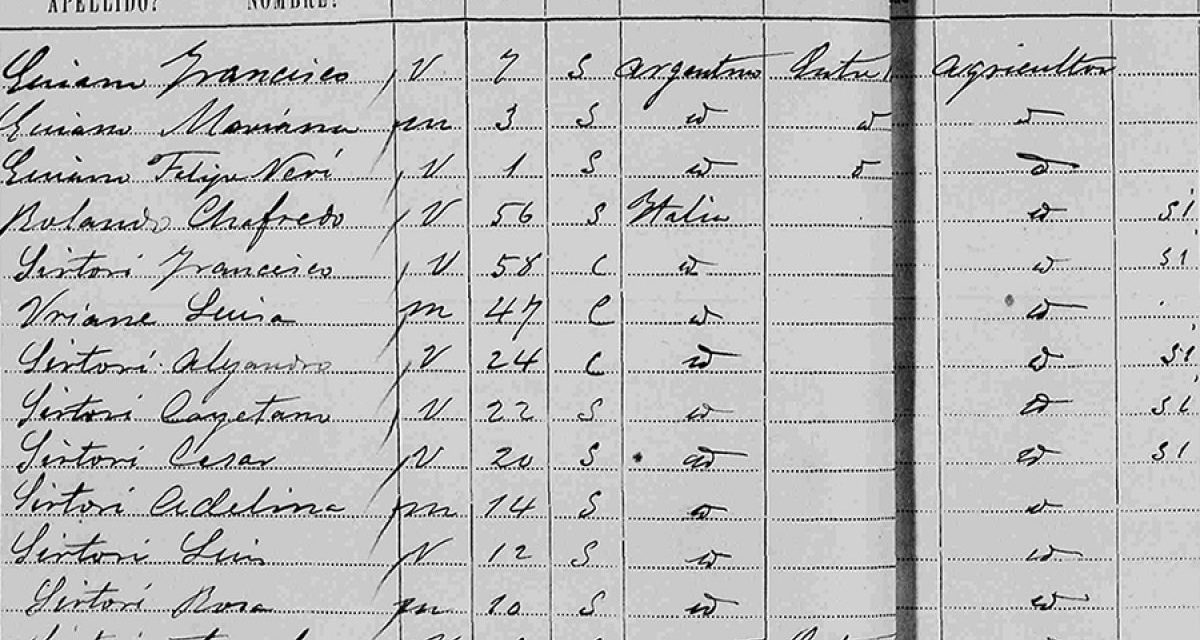 APELLIDO? NOMBRE?
Francisco V 7 S Argentino Entre Agricultor
Mariana m 3 S id id id
Felipe Neri V 1 S id id id
Rolando Chafredo V 56 S Italia id si
Sirtori Francisco V 58 C id id si
Vriane Luisa m 47 C id id
Sirtori Alejandro V 24 C id id si
Sirtori Cayetano V 22 S id id si
Sirtori Cesar V 20 S id id si
Sirtori Adelina m 14 S id id
Sirtori Luis V 12 S id id
Sirtori Rosa m 10 S id id